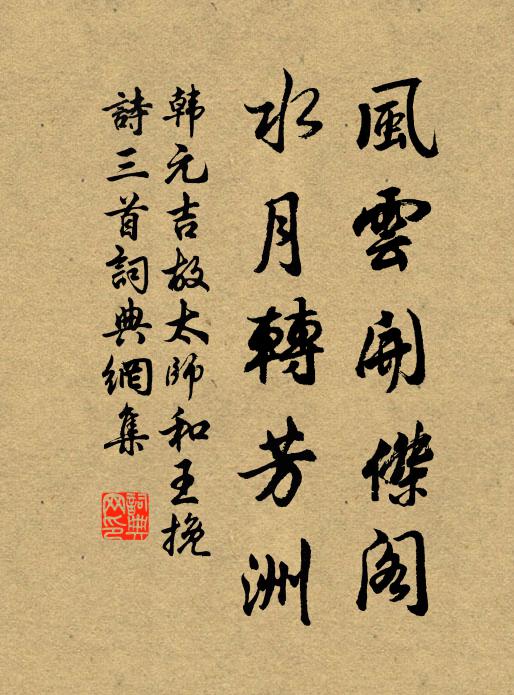 風雲開傑閣
水月轉芳洲
韩元吉故太師和王挽
詩三首詞典網集
詞典网印